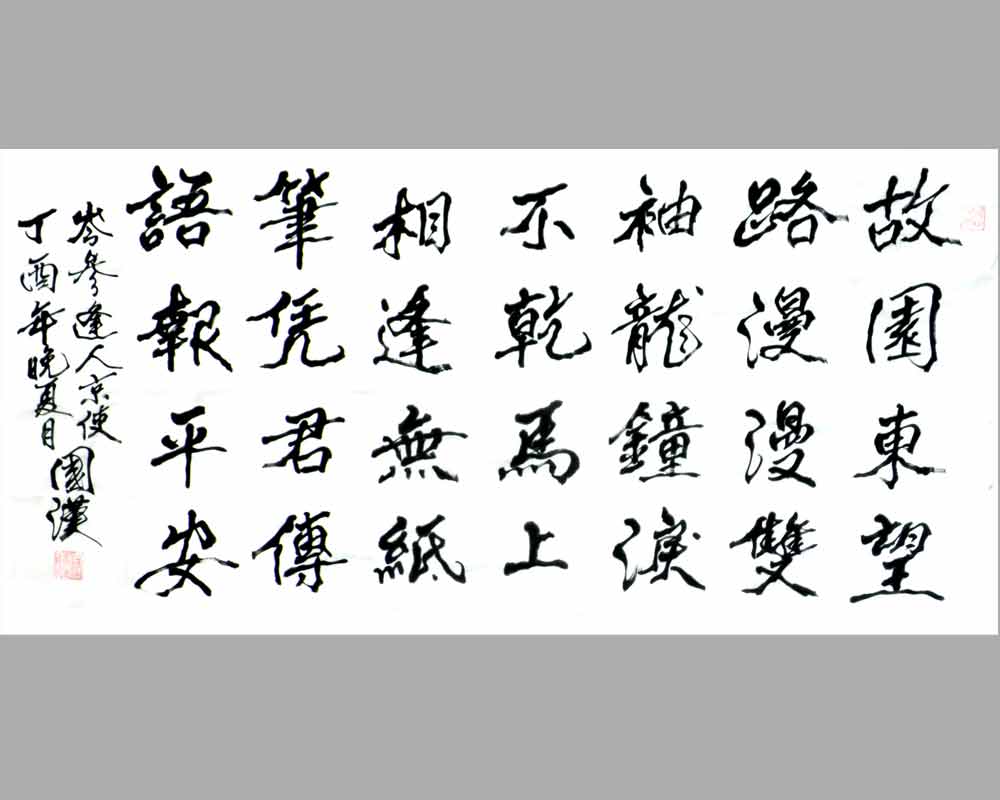 故園東望
路漫漫雙
袖龍鐘淚
不乾馬上
相逢無紙
筆凭君傳
語報平安
岑參逢人京使
丁酉年晚夏日國漢